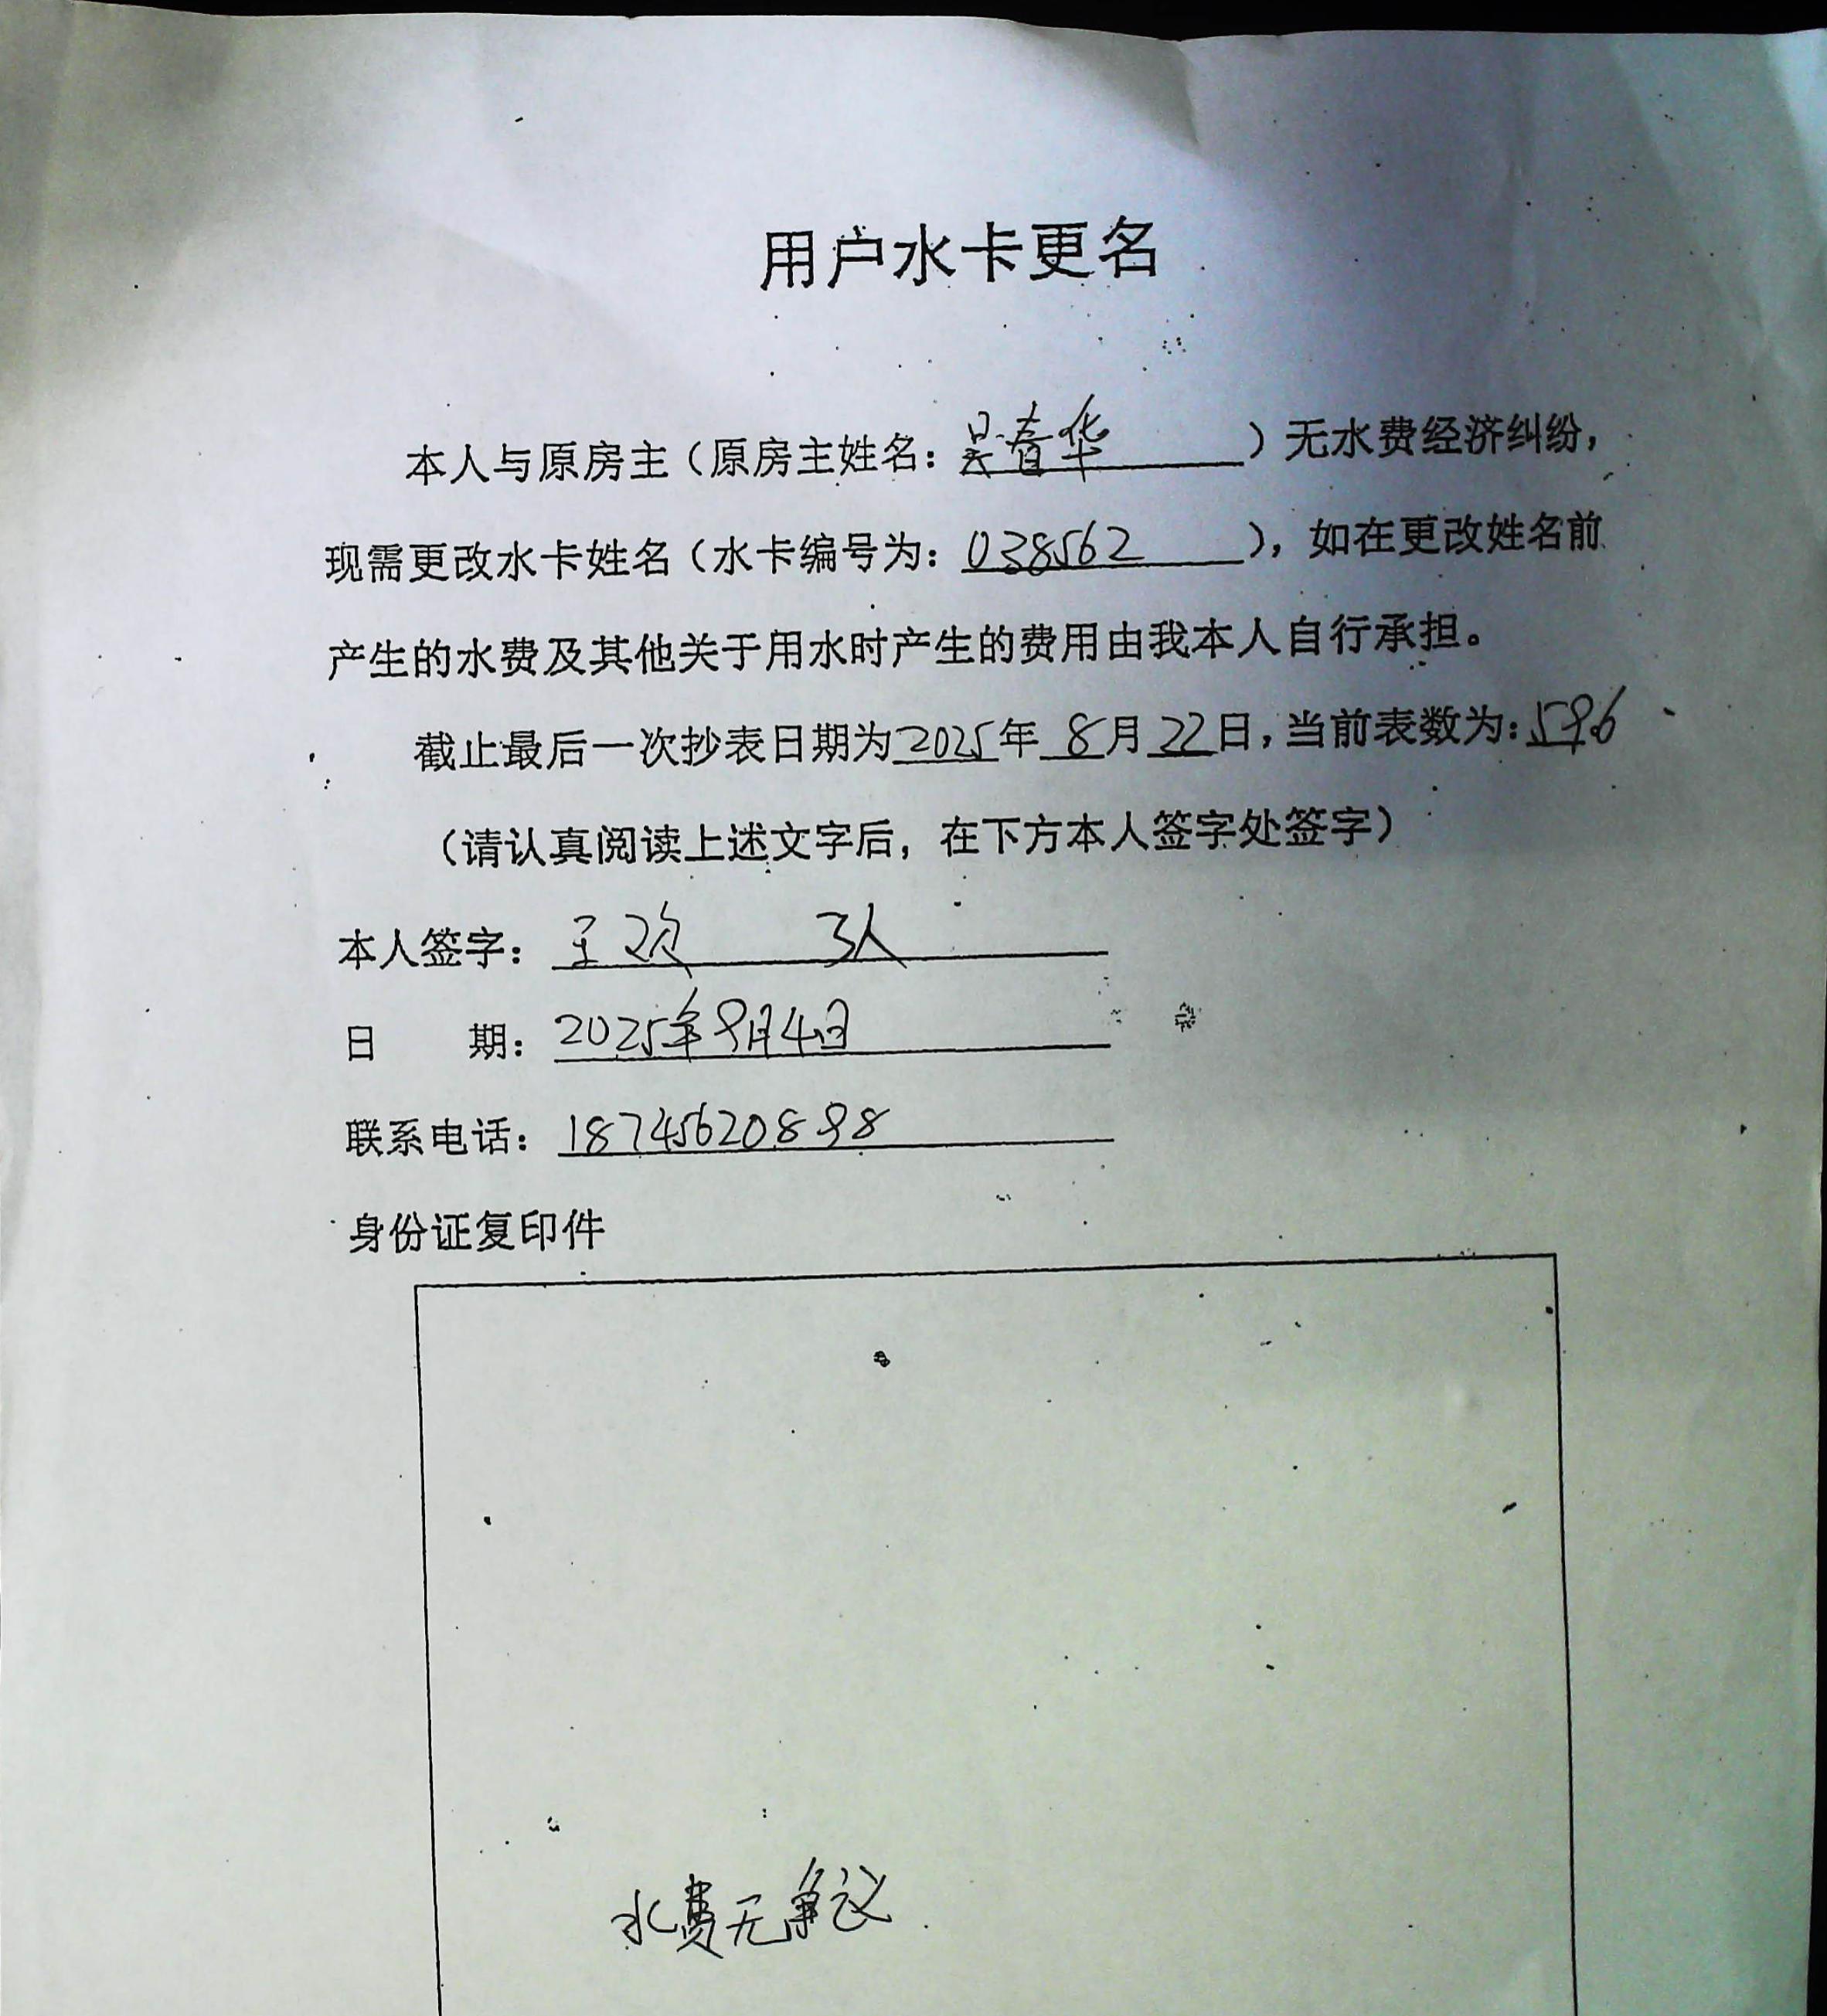 用户水卡更名
本人与原房主（原房主姓名：吴春华）无水费经济纠纷，
现需更改水卡姓名（水卡编号为：038562），如在更改姓名前
产生的水费及其他关于用水时产生的费用由我本人自行承担。
截止最后一次抄表日期为2025年8月22日，当前表数为：596
（请认真阅读上述文字后，在下方本人签字处签字）
本人签字：王欢 3人
日 期：2025年9月4日
联系电话：18745620898
身份证复印件
水费无争议